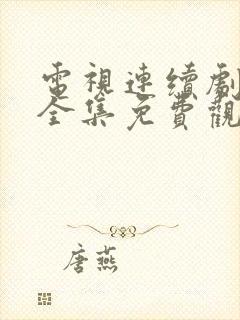 電視連續劇
全集免費觀
唐燕